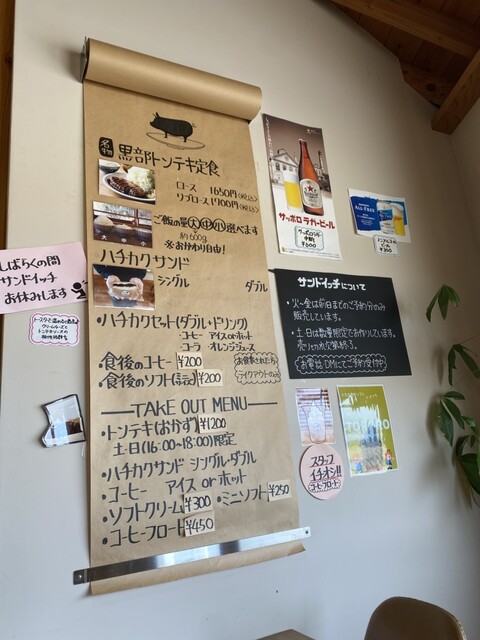 名物 黒部トンテキ定食
ロース 1650円(税込)
リブロース 1900円(税込)
ご飯の量 大 中 小 選べます
約600g
※おかわり自由!
ハチカクサンド
シングル ダブル
・ハチカクセット(ダブル・ドリンク)
・コーヒー アイス or ホット
・コーラ オレンジジュース
・食後のコーヒー ¥200
・食後のソフト ¥200
テイクアウトのみ
TAKE OUT MENU
・トンテキ(おかず) ¥1200
土・日(16:00~18:00)限定
・ハチカクサンド シングル・ダブル
・コーヒー アイス or ホット
・ソフトクリーム ¥300 ・ミニソフト ¥250
・コーヒーフロート ¥450
しばらくの間
サンドイッチ
お休みします
サッポロ ラガービール
¥600
ALL-FREE
ノンアルコール
ビール
¥350
サンドイッチについて
・火~金は前日までのご予約分のみ
販売しています。
・土・日は数量限定でお作りしています。
売り切れ次第終了。
お電話、DMにてご予約受付中
スタッフ
イチオシ!!
コーヒーフロート